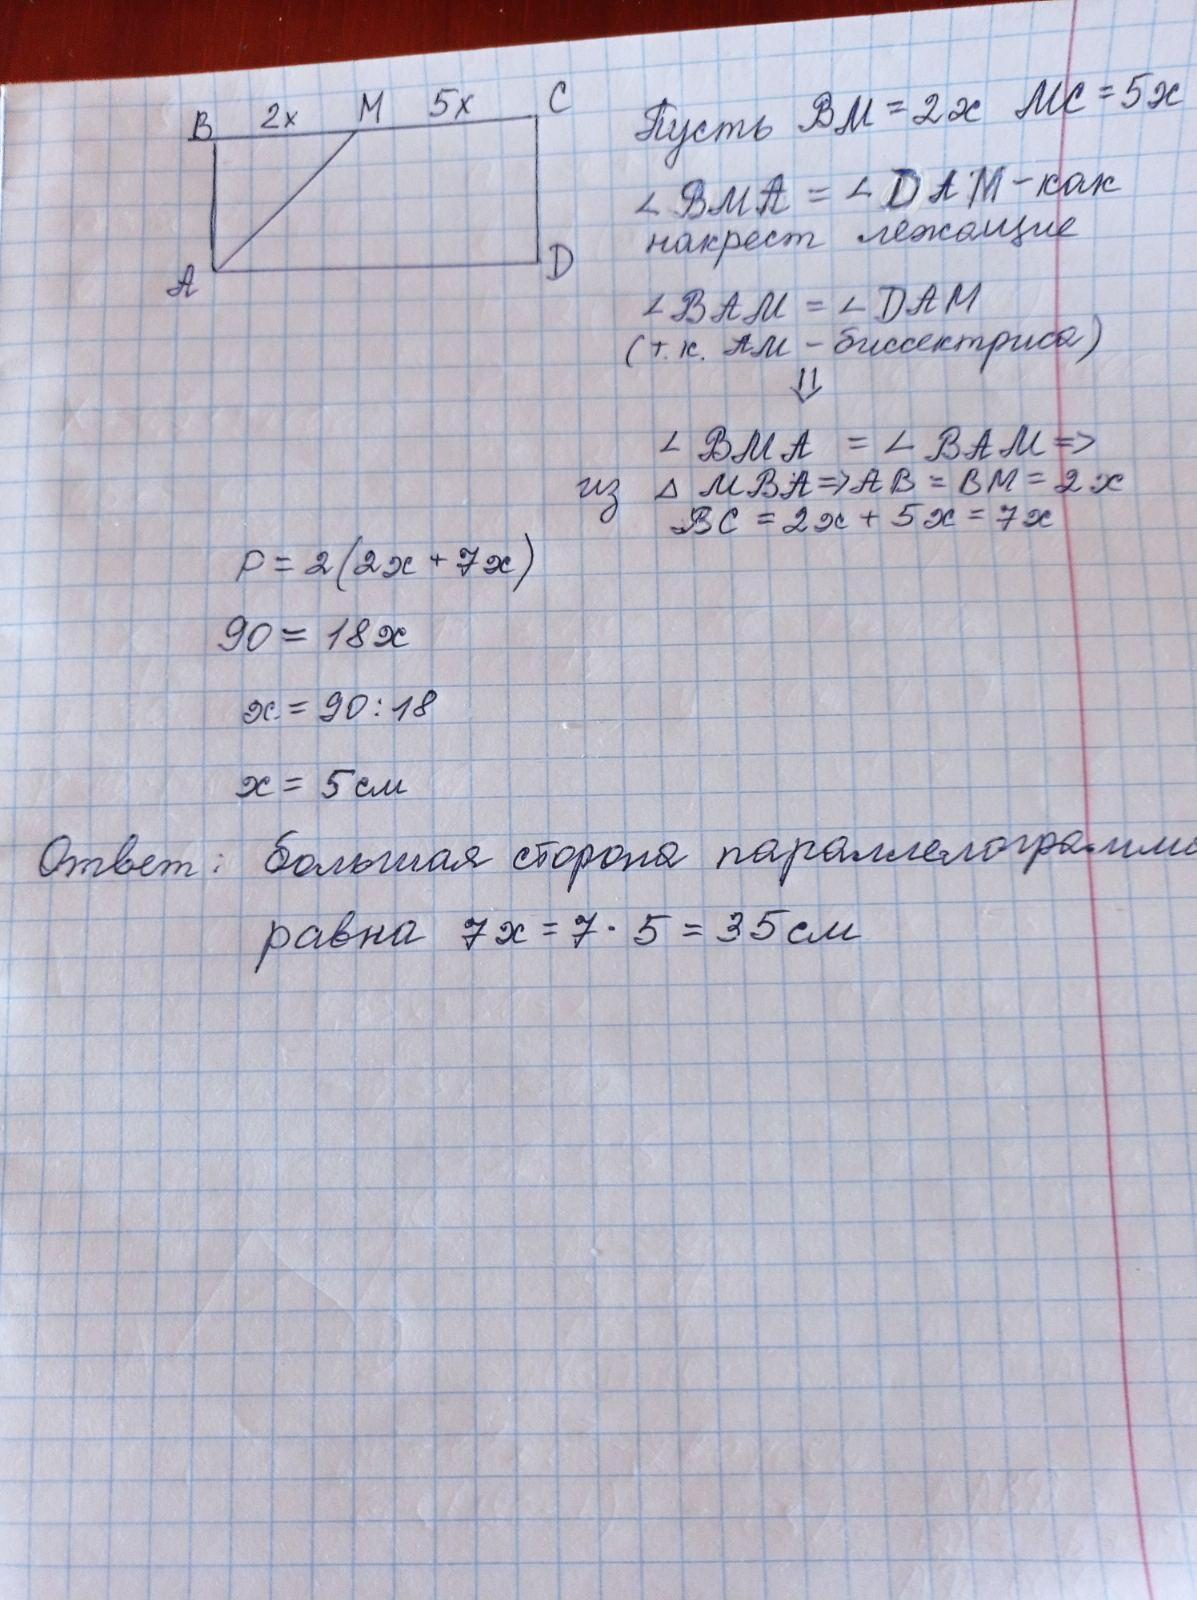 B 2x M 5x C
A D
Пусть BM = 2x MC = 5x
∠BMA = ∠DAM - как
накрест лежащие
∠BAM = ∠DAM
(т.к. AM - биссектриса)
⇓
∠BMA = ∠BAM =>
из △ MBA => AB = BM = 2x
BC = 2x + 5x = 7x
P = 2(2x + 7x)
90 = 18x
x = 90:18
x = 5 см
Ответ: большая сторона параллелограмма
равна 7x = 7 · 5 = 35 см